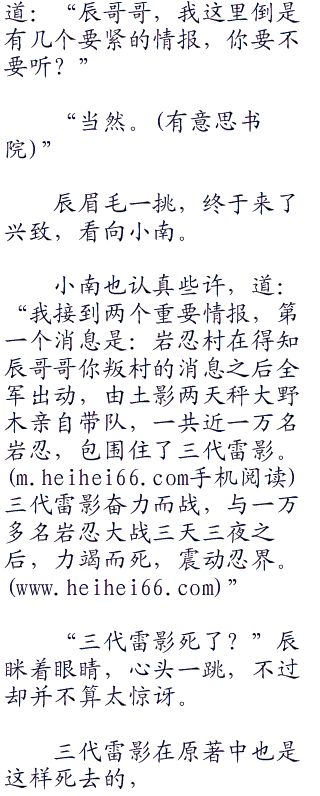 道：“辰哥哥，我这里倒是
有几个要紧的情报，你要不
要听？”
“当然。(有意思书
院)”
辰眉毛一挑，终于来了
兴致，看向小南。
小南也认真些许，道：
“我接到两个重要情报，第
一个消息是：岩忍村在得知
辰哥哥你叛村的消息之后全
军出动，由土影两天秤大野
木亲自带队，一共近一万名
岩忍，包围住了三代雷影。
(m.heihei66.com手机阅读)
三代雷影奋力而战，与一万
多名岩忍大战三天三夜之
后，力竭而死，震动忍界。
(www.heihei66.com)”
“三代雷影死了？”辰
眯着眼睛，心头一跳，不过
却并不算太惊讶。
三代雷影在原著中也是
这样死去的，